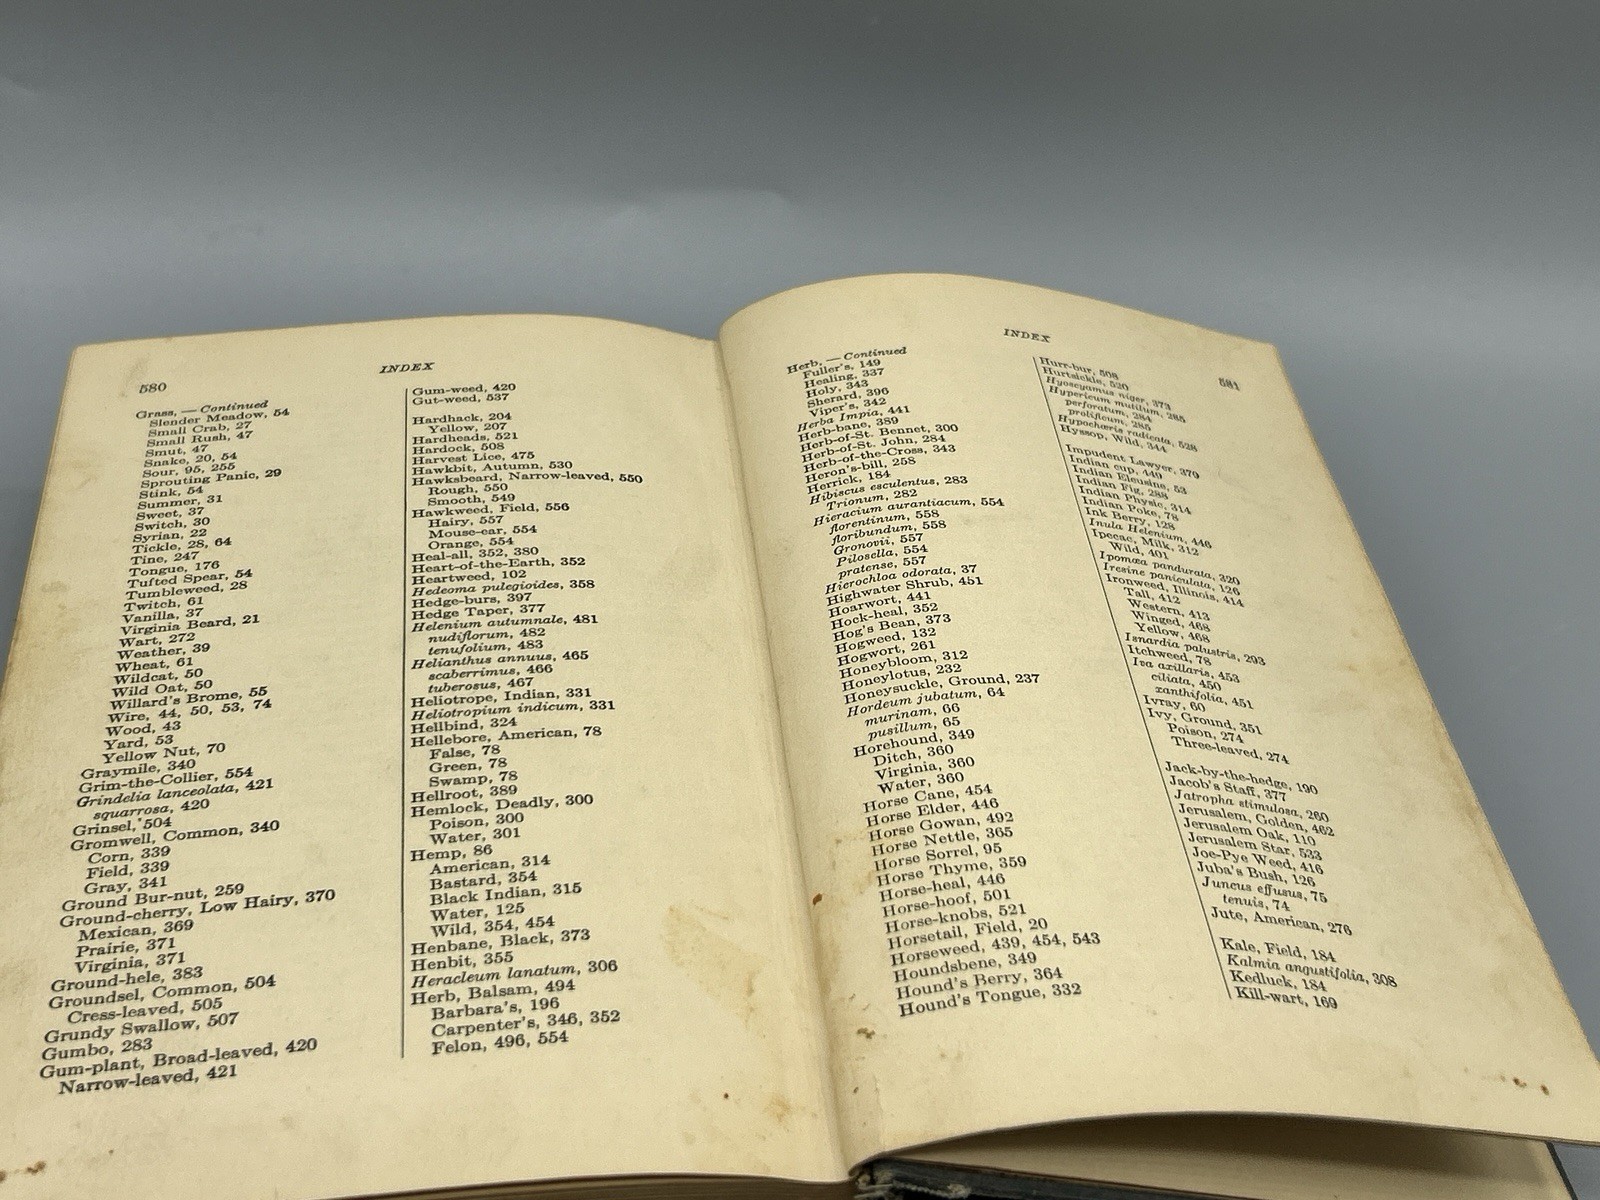 580
INDEX
Grass, — Continued
Slender Meadow, 54
Small Crab, 27
Small Rush, 47
Smut, 47
Snake, 20, 54
Sour, 95, 255
Sprouting Panic, 29
Stink, 54
Summer, 31
Sweet, 37
Switch, 30
Syrian, 22
Tickle, 28, 64
Tine, 247
Tongue, 176
Tufted Spear, 54
Tumbleweed, 28
Twitch, 61
Vanilla, 37
Virginia Beard, 21
Wart, 272
Weather, 39
Wheat, 61
Wildcat, 50
Wild Oat, 50
Willard's Brome, 55
Wire, 44, 50, 53, 74
Wood, 43
Yard, 53
Yellow Nut, 70
Graymile, 340
Grim-the-Collier, 554
Grindelia lanceolata, 421
squarrosa, 420
Grinsel, 504
Gromwell, Common, 340
Corn, 339
Field, 339
Gray, 341
Ground Bur-nut, 259
Ground-cherry, Low Hairy, 370
Mexican, 369
Prairie, 371
Virginia, 371
Ground-hele, 383
Groundsel, Common, 504
Cress-leaved, 505
Grundy Swallow, 507
Gumbo, 283
Gum-plant, Broad-leaved, 420
Narrow-leaved, 421
Gum-weed, 420
Gut-weed, 537
Hardhack, 204
Yellow, 207
Hardheads, 521
Hardock, 508
Harvest Lice, 475
Hawkbit, Autumn, 530
Hawksbeard, Narrow-leaved, 550
Rough, 550
Smooth, 549
Hawkweed, Field, 556
Hairy, 557
Mouse-ear, 554
Orange, 554
Heal-all, 352, 380
Heart-of-the-Earth, 352
Heartweed, 102
Hedeoma pulegioides, 358
Hedge-burs, 397
Hedge Taper, 377
Helenium autumnale, 481
nudiflorum, 482
tenufolium, 483
Helianthus annuus, 465
scaberrimus, 466
tuberosus, 467
Heliotrope, Indian, 331
Heliotropium indicum, 331
Hellbind, 324
Hellebore, American, 78
False, 78
Green, 78
Swamp, 78
Hellroot, 389
Hemlock, Deadly, 300
Poison, 300
Water, 301
Hemp, 86
American, 314
Bastard, 354
Black Indian, 315
Water, 125
Wild, 354, 454
Henbane, Black, 373
Henbit, 355
Heracleum lanatum, 306
Herb, Balsam, 494
Barbara's, 196
Carpenter's, 346, 352
Felon, 496, 554
INDEX
581
Herb, — Continued
Fuller's, 149
Healing, 337
Holy, 343
Sherard, 396
Viper's, 342
Herba Impia, 441
Herb-bane, 389
Herb-of-St. Bennet, 300
Herb-of-St. John, 284
Herb-of-the-Cross, 343
Heron's-bill, 258
Herrick, 184
Hibiscus esculentus, 283
Trionum, 282
Hieracium aurantiacum, 554
florentinum, 558
floribundum, 558
Gronovii, 557
Pilosella, 554
pratense, 557
Hierochloa odorata, 37
Highwater Shrub, 451
Hoarwort, 441
Hock-heal, 352
Hog's Bean, 373
Hogweed, 132
Hogwort, 261
Honeybloom, 312
Honeylotus, 232
Honeysuckle, Ground, 237
Hordeum jubatum, 64
murinam, 66
pusillum, 65
Horehound, 349
Ditch, 360
Virginia, 360
Water, 360
Horse Cane, 454
Horse Elder, 446
Horse Gowan, 492
Horse Nettle, 365
Horse Sorrel, 95
Horse Thyme, 359
Horse-heal, 446
Horse-hoof, 501
Horse-knobs, 521
Horsetail, Field, 20
Horseweed, 439, 454, 543
Houndsbene, 349
Hound's Berry, 364
Hound's Tongue, 332
Hurr-bur, 508
Hurtsickle, 520
Hyoscyamus niger, 373
Hypericum mutilum, 285
perforatum, 284
prolificum, 285
Hypochæris radicata, 528
Hyssop, Wild, 344
Impudent Lawyer, 379
Indian cup, 449
Indian Eleusine, 53
Indian Fig, 288
Indian Physic, 314
Indian Poke, 78
Ink Berry, 128
Inula Helenium, 446
Ipecac, Milk, 312
Wild, 401
Ipomœa pandurata, 320
Iresine paniculata, 126
Ironweed, Illinois, 414
Tall, 412
Western, 413
Winged, 468
Yellow, 468
Isnardia palustris, 293
Itchweed, 78
Iva axillaris, 453
ciliata, 450
xanthifolia, 451
Ivray, 60
Ivy, Ground, 351
Poison, 274
Three-leaved, 274
Jack-by-the-hedge, 190
Jacob's Staff, 377
Jatropha stimulosa, 260
Jerusalem, Golden, 462
Jerusalem Oak, 110
Jerusalem Star, 533
Joe-Pye Weed, 416
Juba's Bush, 126
Juncus effusus, 75
tenuis, 74
Jute, American, 276
Kale, Field, 184
Kalmia angustifolia, 308
Kedluck, 184
Kill-wart, 169